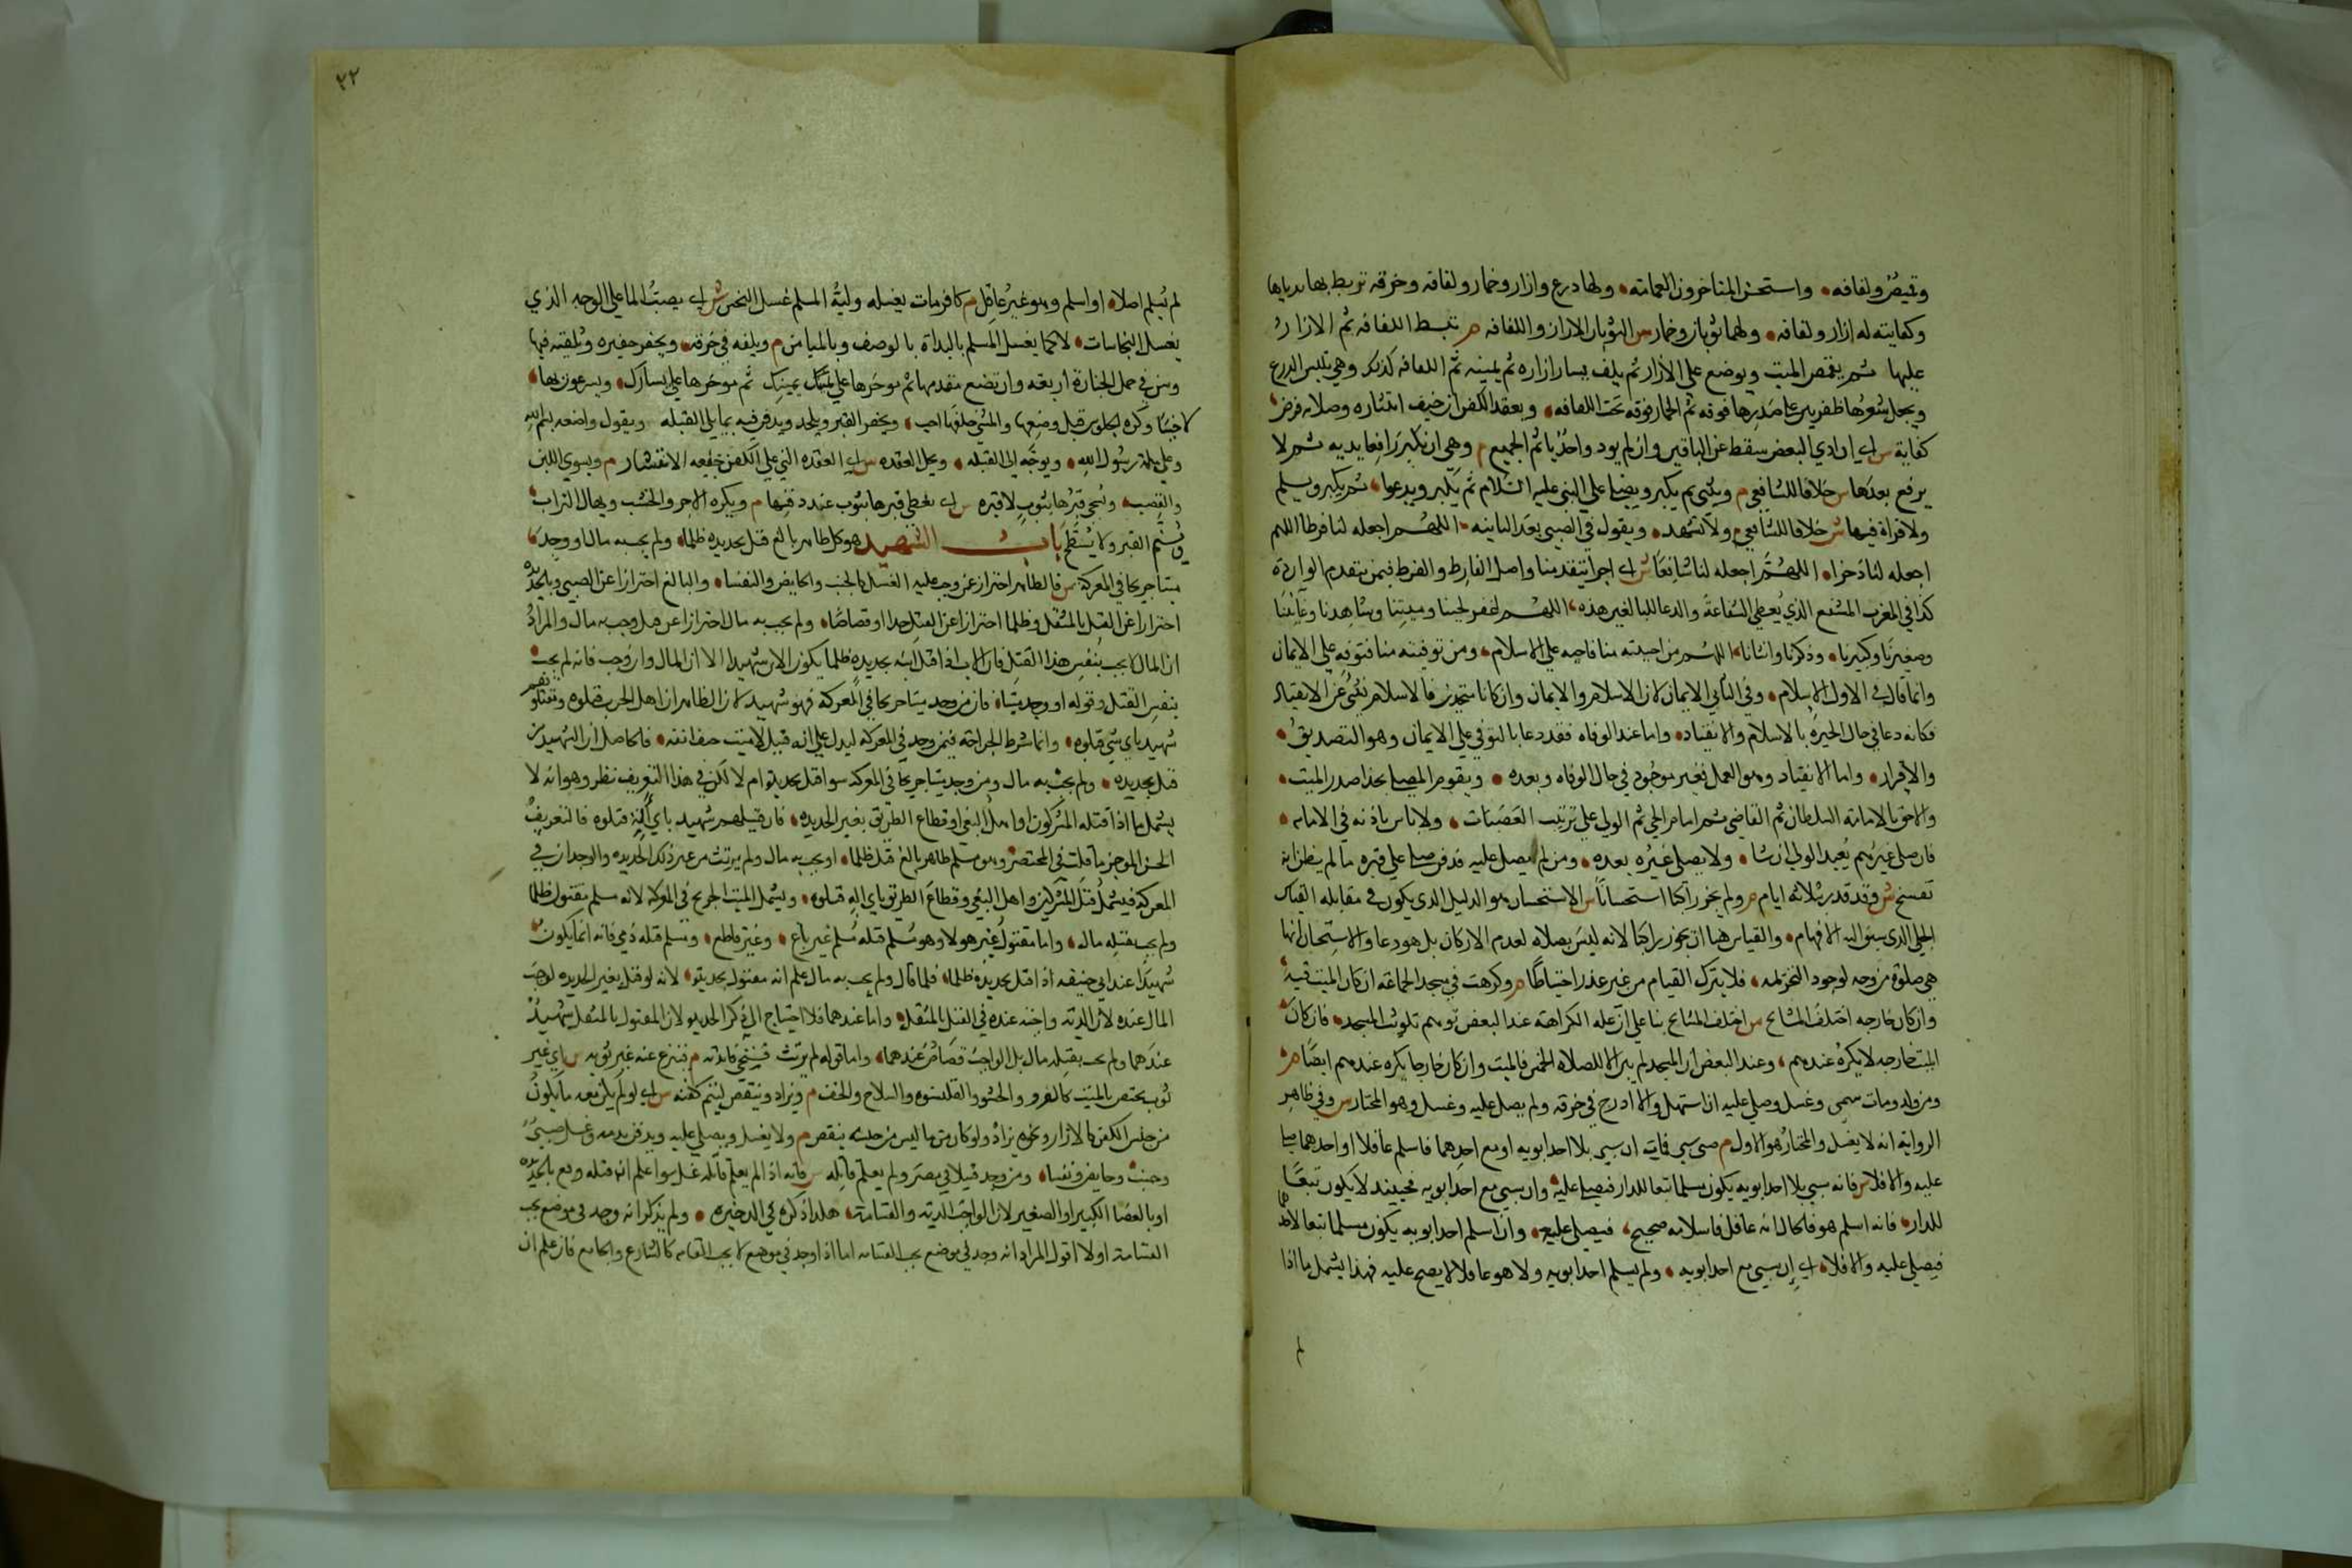 وقميص ولفافه واستحسن المتاخرون العمامه ولها درع وازار وخمار ولفافه وخرقه تربط بها ثدياها
وكفايته له ازار ولفافه ولها ثوبان وخمار س الثوبان الازار واللفافه م تبسط اللفافه ثم الازار
عليها ثم يقمص الميت ويوضع على الازار ثم يلف يسار ازاره ثم يمينه ثم اللفافه كذلك وهي تلبس الدرع
ويجعل شعرها ظفرين على صدرها فوقه ثم الخمار فوقه تحت اللفافه ويعقد الكفن ان خيف انتشاره وصلاته فرض
كفاية س اي ان ادي البعض سقط عن الباقين وان لم يود واحد ياثم الجميع م وهي ان يكبر رافعا يديه ثم لا
يرفع بعدها س خلافا للشافعي م ويثني ثم يكبر ويصلي على النبي عليه السلام ثم يكبر ويدعوا ثم يكبر ويسلم
ولا قراة فيها ش خلافا للشافعي م ولا تشهد ويقول في الصبي بعد الثانيه اللهم اجعله لنا فرطا اللهم
اجعله لنا ذخرا اللهم اجعله لنا شافعا ش اي اجرا يتقدمنا واصل الفارط والفرط فيمن يتقدم الواردة
كذا في المغرب المشفع الذي يعطي الشفاعة والدعا للبالغ هذه اللهم اغفر لحينا وميتنا وشاهدنا وغائبنا
وصغيرنا وكبيرنا وذكرنا وانثانا اللهم من احييته منا فاحيه على الاسلام ومن توفيته منا فتوفه على الايمان
وانما قال في الاول الاسلام وفي الثاني الايمان لان الاسلام والايمان وان كانا متحدين فالاسلام ينبئ عن الانقياد
فكانه دعا في حال الحيوة بالاسلام والانقياد واما عند الوفاه فقد دعا بالتوفي على الايمان وهو التصديق
والاقرار واما الانقياد وهو العمل فغير موجود في حال الوفاه وبعده ويقوم المصلي بحذا صدر الميت
والاحق بالامامه السلطان ثم القاضي ثم امام الحي ثم الولي على ترتيب العصبات ولا باس باذنه في الامامه
فان صلى غيرهم يعيد الولي ان شا ولا يصلي غيره بعده ومن لم يصل عليه فدفن صلى على قبره ما لم يظن انه
تفسخ ش وقد قدر بثلاثه ايام م ولم يجز راكبا استحسانا س الاستحسان هو الدليل الذي يكون في مقابله القياس
الجلي الذي يسبق اليه الافهام والقياس هنا ان يجوز راكبا لانه ليس بصلاه لعدم الاركان بل هو دعا والاستحسان انها
هي صلوة من وجه لوجود التحريمه فلا يترك القيام من غير عذر احتياطا م وكرهت في مسجد الجماعه ان كان الميت فيه
وان كان خارجه اختلف المشايخ س اختلف المشايخ بنا على ان عله الكراهة عند البعض توهم تلويث المسجد فان كان
الميت خارجه لا يكره عندهم وعند البعض ان المسجد لم يبن الا للصلاه الخمس فالميت وان كان خارجا يكره عندهم ايضا م
ومن ولد ومات سمى وغسل وصلي عليه ان استهل والا ادرج في خرقه ولم يصل عليه وغسل وهو المختار س وفي ظاهر
الرواية انه لا يغسل والمختار هو الاول م صبي سبي فمات ان سبي بلا احد ابويه او مع احدهما فاسلم عاقلا او احدهما صلى
عليه والا فلا س فانه سبي بلا احد ابويه يكون مسلما تبعا للدار فيصلى عليه وان سبي مع احد ابويه فحينئذ لا يكون تبعا
للدار فانه اسلم هو فالحال انه عاقل فاسلامه صحيح فيصلى عليه وان اسلم احد ابويه يكون مسلما تبعا لاحدهما
فيصلى عليه والا فلا اي ان سبي مع احد ابويه ولم يسلم احد ابويه ولا هو عاقلا لا يصح عليه فهذا يشمل ما اذا
لم
٢٢
لم يسلم اصلا او اسلم وهو غير عاقل م كافر مات يغسله وليه المسلم غسل النجس ش اي يصب الما على الوجه الذي
يغسل النجاسات لا كما يغسل المسلم بالبداة بالوضو وبالميامن م ويلفه في خرقه ويحفر حفيره ويلقيه فيها
وسن في حمل الجنازة اربعه وان تضع مقدمها ثم موخرها على يمينك ثم موخرها على يسارك ويسرعون بها
لا خببا وكره الجلوس قبل وضعها والمشي خلفها احب ويحفر القبر ويلحد ويدخل فيه مما يلي القبله ويقول واضعه بسم الله
وعلى ملة رسول الله ويوجه الى القبله ويحل العقده س اي العقده التي على الكفن خيفه الانتشار م ويسوي اللبن
والقصب ويسجى قبرها بثوب لا قبره س اي يغطى قبرها بثوب عند دفنها م ويكره الاجر والخشب ويهال التراب
ويسنم القبر ولا يسطح باب الشهيد هو كل طاهر بالغ قتل بحديده ظلما ولم يجب به مال او وجد
ميتا جريحا في المعركة س فالطاهر احتراز عن وجب عليه الغسل كالجنب والحايض والنفسا والبالغ احترازا عن الصبي وبالحديده
احترازا عن القتل بالمثقل وظلما احترازا عن القتل حدا او قصاصا ولم يجب به مال احترازا عن قتل وجب به مال والمراد
ان المال لا يجب بنفس هذا القتل فان الاب اذا قتل ابنه بحديده ظلما يكون الابن شهيدا الا ان المال وان وجب فانه لم يجب
بنفس القتل وقوله او وجد ميتا فان من وجد ميتا جريحا في المعركه فهو شهيد لان الظاهر ان اهل الحرب قتلوه ومقتولهم
شهيد باي شي قتلوه وانما شرط الجراحه فيمن وجد في المعركه ليدل على انه قتيل لا ميت حتف انفه فالحاصل ان الشهيد من
قتل بحديده ولم يجب به مال ومن وجد ميتا جريحا في المعركه سوا قتل بحديده ام لا لكن في هذا التعريف نظر وهو انه لا
يشمل ما اذا قتله المشركون او اهل البغي او قطاع الطريق بغير الحديده فان قتيلهم شهيد باي الة قتلوه فالتعريف
الحسن الموجز ما قلت في المختصر وهو مسلم طاهر بالغ قتل ظلما او يجب به مال ولم يرتث من غير ذكر الحديده والوجدان في
المعركه فيشمل قتل المشركين واهل البغي وقطاع الطريق باي اله قتلوه ويشمل الميت الجريح في المعركه لانه مسلم مقتول ظلما
ولم يجب بقتله مال واما مقتول غير هولا وهو مسلم قتله مسلم غير باغ وغير قاطع ومسلم قتله ذمي فانه انما يكون
شهيدا عند ابي حنيفه اذا قتل بحديده ظلما فلما قال ولم يجب به مال علم انه مقتول بحديده لانه لو قتل بغير الحديده لوجب
المال عنده لان الديه واجبه عنده في القتل بالمثقل واما عندهما فلا احتياج الى ذكر الحديده لان المقتول بالمثقل شهيد
عندهما ولم يجب بقتله مال بل الواجب قصاص عندهما واما قوله لم يرتث فسيجي فايدته م فينزع عنه غير ثوبه س اي غير
ثوب يختص بالميت كالفرو والحشو والقلنسوه والسلاح والخف م ويزاد وينتقص ليتم كفنه س اي لو لم يكن معه ما يكون
من جنس الكفن كالازار ونحوه يزاد ولو كان معه ما ليس من جنسه ينقص م ولا يغسل ويصلى عليه ويدفن بدمه وغسل صبي
وجنب وحايض ونفسا ومن وجد قتيلا في مصر ولم يعلم قاتله س فانه اذا لم يعلم قاتله غسل سوا علم ان قتله وقع بالحديده
او بالعصا الكبير او الصغير لان الواجب الديه والقسامة هكذا ذكره في الذخيره ولم يذكر انه وجد في موضع يجب
القسامة اولا اقول المراد انه وجد في موضع يجب القسامه اما اذا وجد في موضع لا يجب القسامه كالشارع والجامع فان علم ان